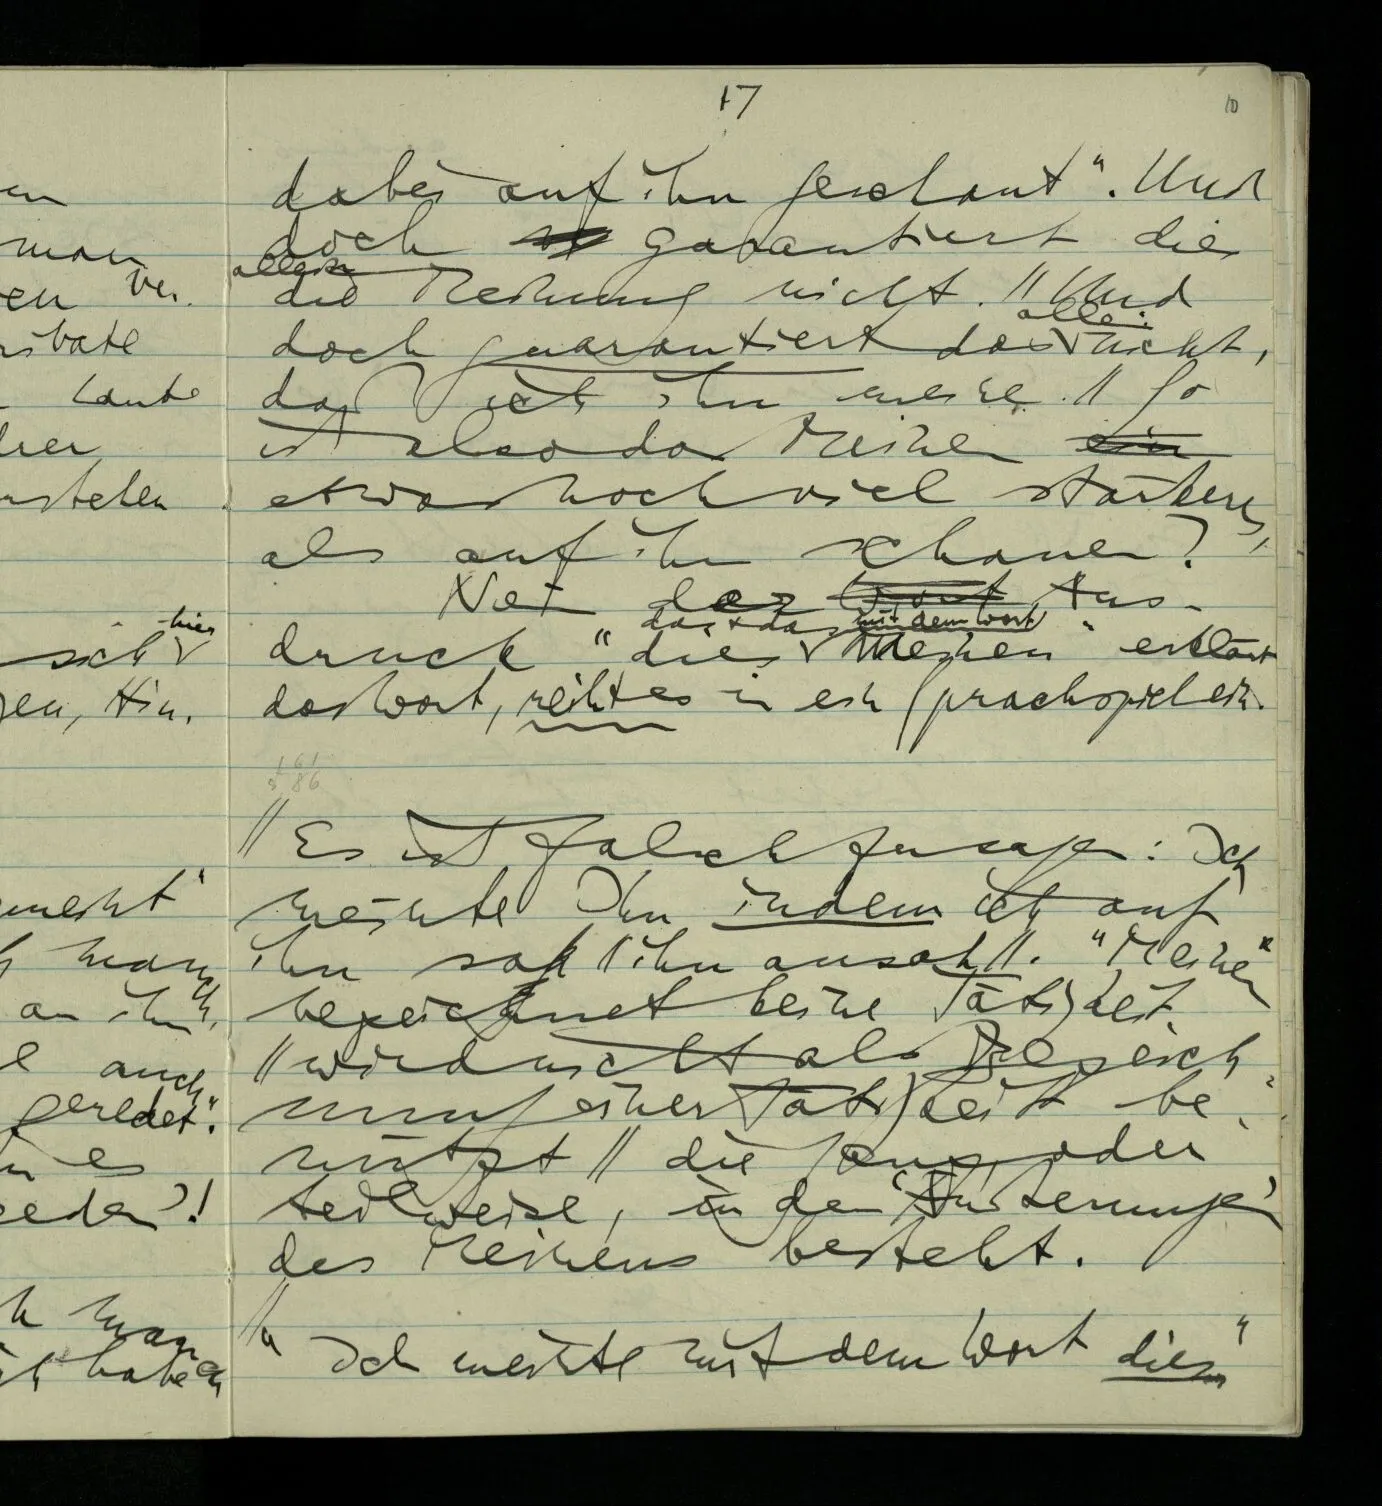 17
10
dabei auf ihn geschaut". Und
doch garantiert dies
allein
die Meinung nicht. // Und
allein
doch garantiert das nicht,
daß ich ihn meine. // So
ist also das Meinen ein
etwas noch viel stärkeres,
als auf ihn schauen?
Nein der Wort Aus-
das & das mit dem Wort
druck "dies meinen" erklärt
das Wort, reiht es in ein Sprachspiel ein.
161
86
// Es ist falsch zu sagen: Ich
meinte Ihn indem ich auf
ihn sah // ihn ansah //. "Meinen"
bezeichnet keine Tätigkeit
// wird nicht als Bezeich
nung einer Tätigkeit be
nützt // die ganz, oder
teilweise, in den 'Äußerungen'
des Meinens besteht.
// "Ich meinte mit dem Wort dies"
en
man
en ver.
Laute
nstehen
hier
sich
en, Hin.
meint"
man
an ihn",
auch
geredet".
es
reden'!
man
habe